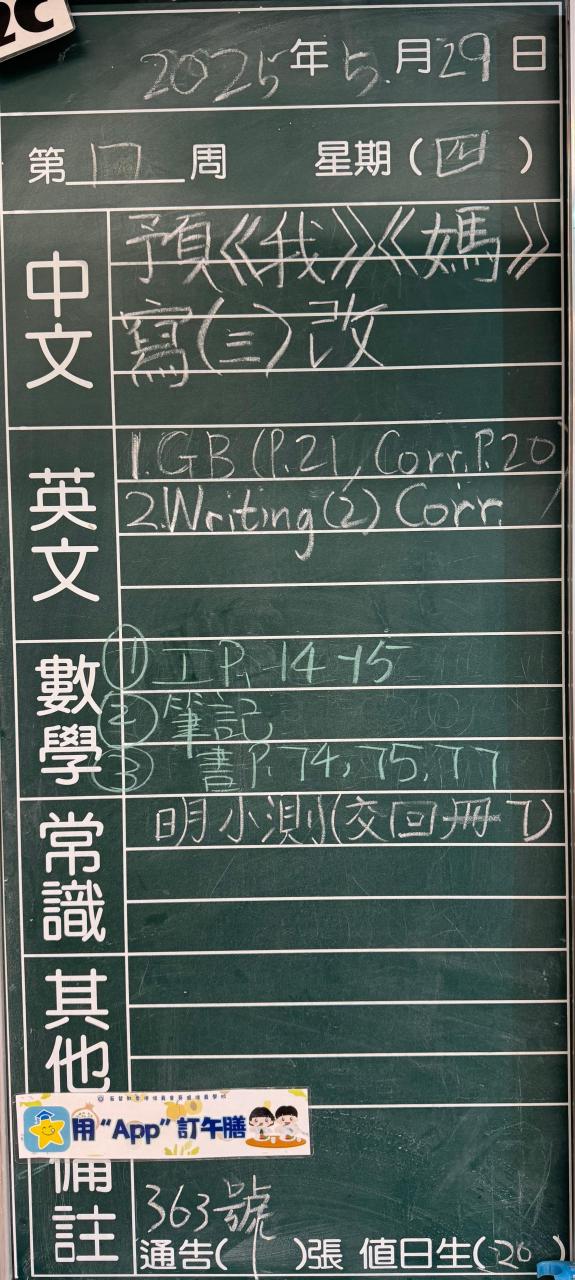 2C
2025年5月29日
第 周 星期(四)
中文
預《我》《媽》
寫(三)改
英文
1.GB (P.21, Corr.P.20)
2.Writing(2) Corr.
數學
① 工P.14-15
② 筆記
③ 書P.74,75,77
常識
明小測(交回冊
其他
用“App”訂午膳
備註
363號
通告(1)張 值日生(26)